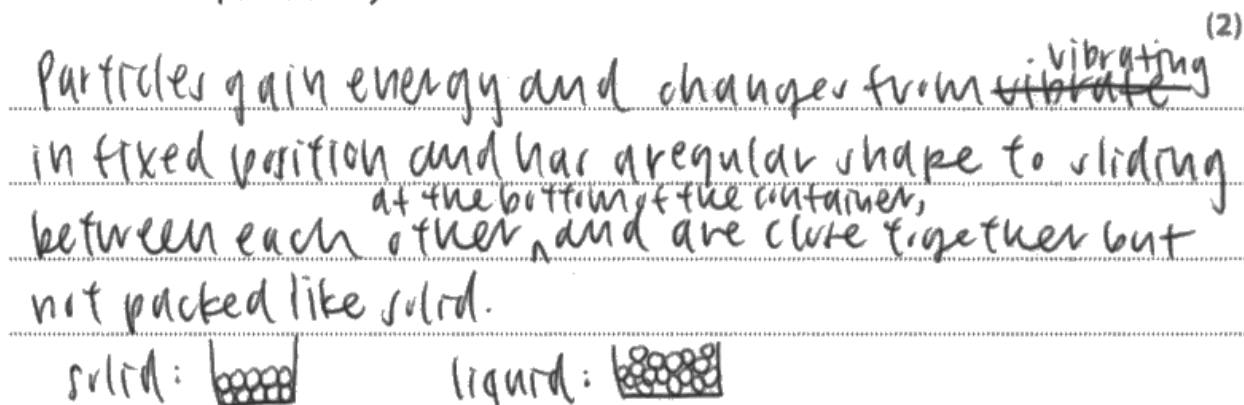 (2)
Particles gain energy and changes from vibrating
in fixed position and has a regular shape to sliding
between each other at the bottom of the container, and are close together but
not packed like solid.
solid: liquid: